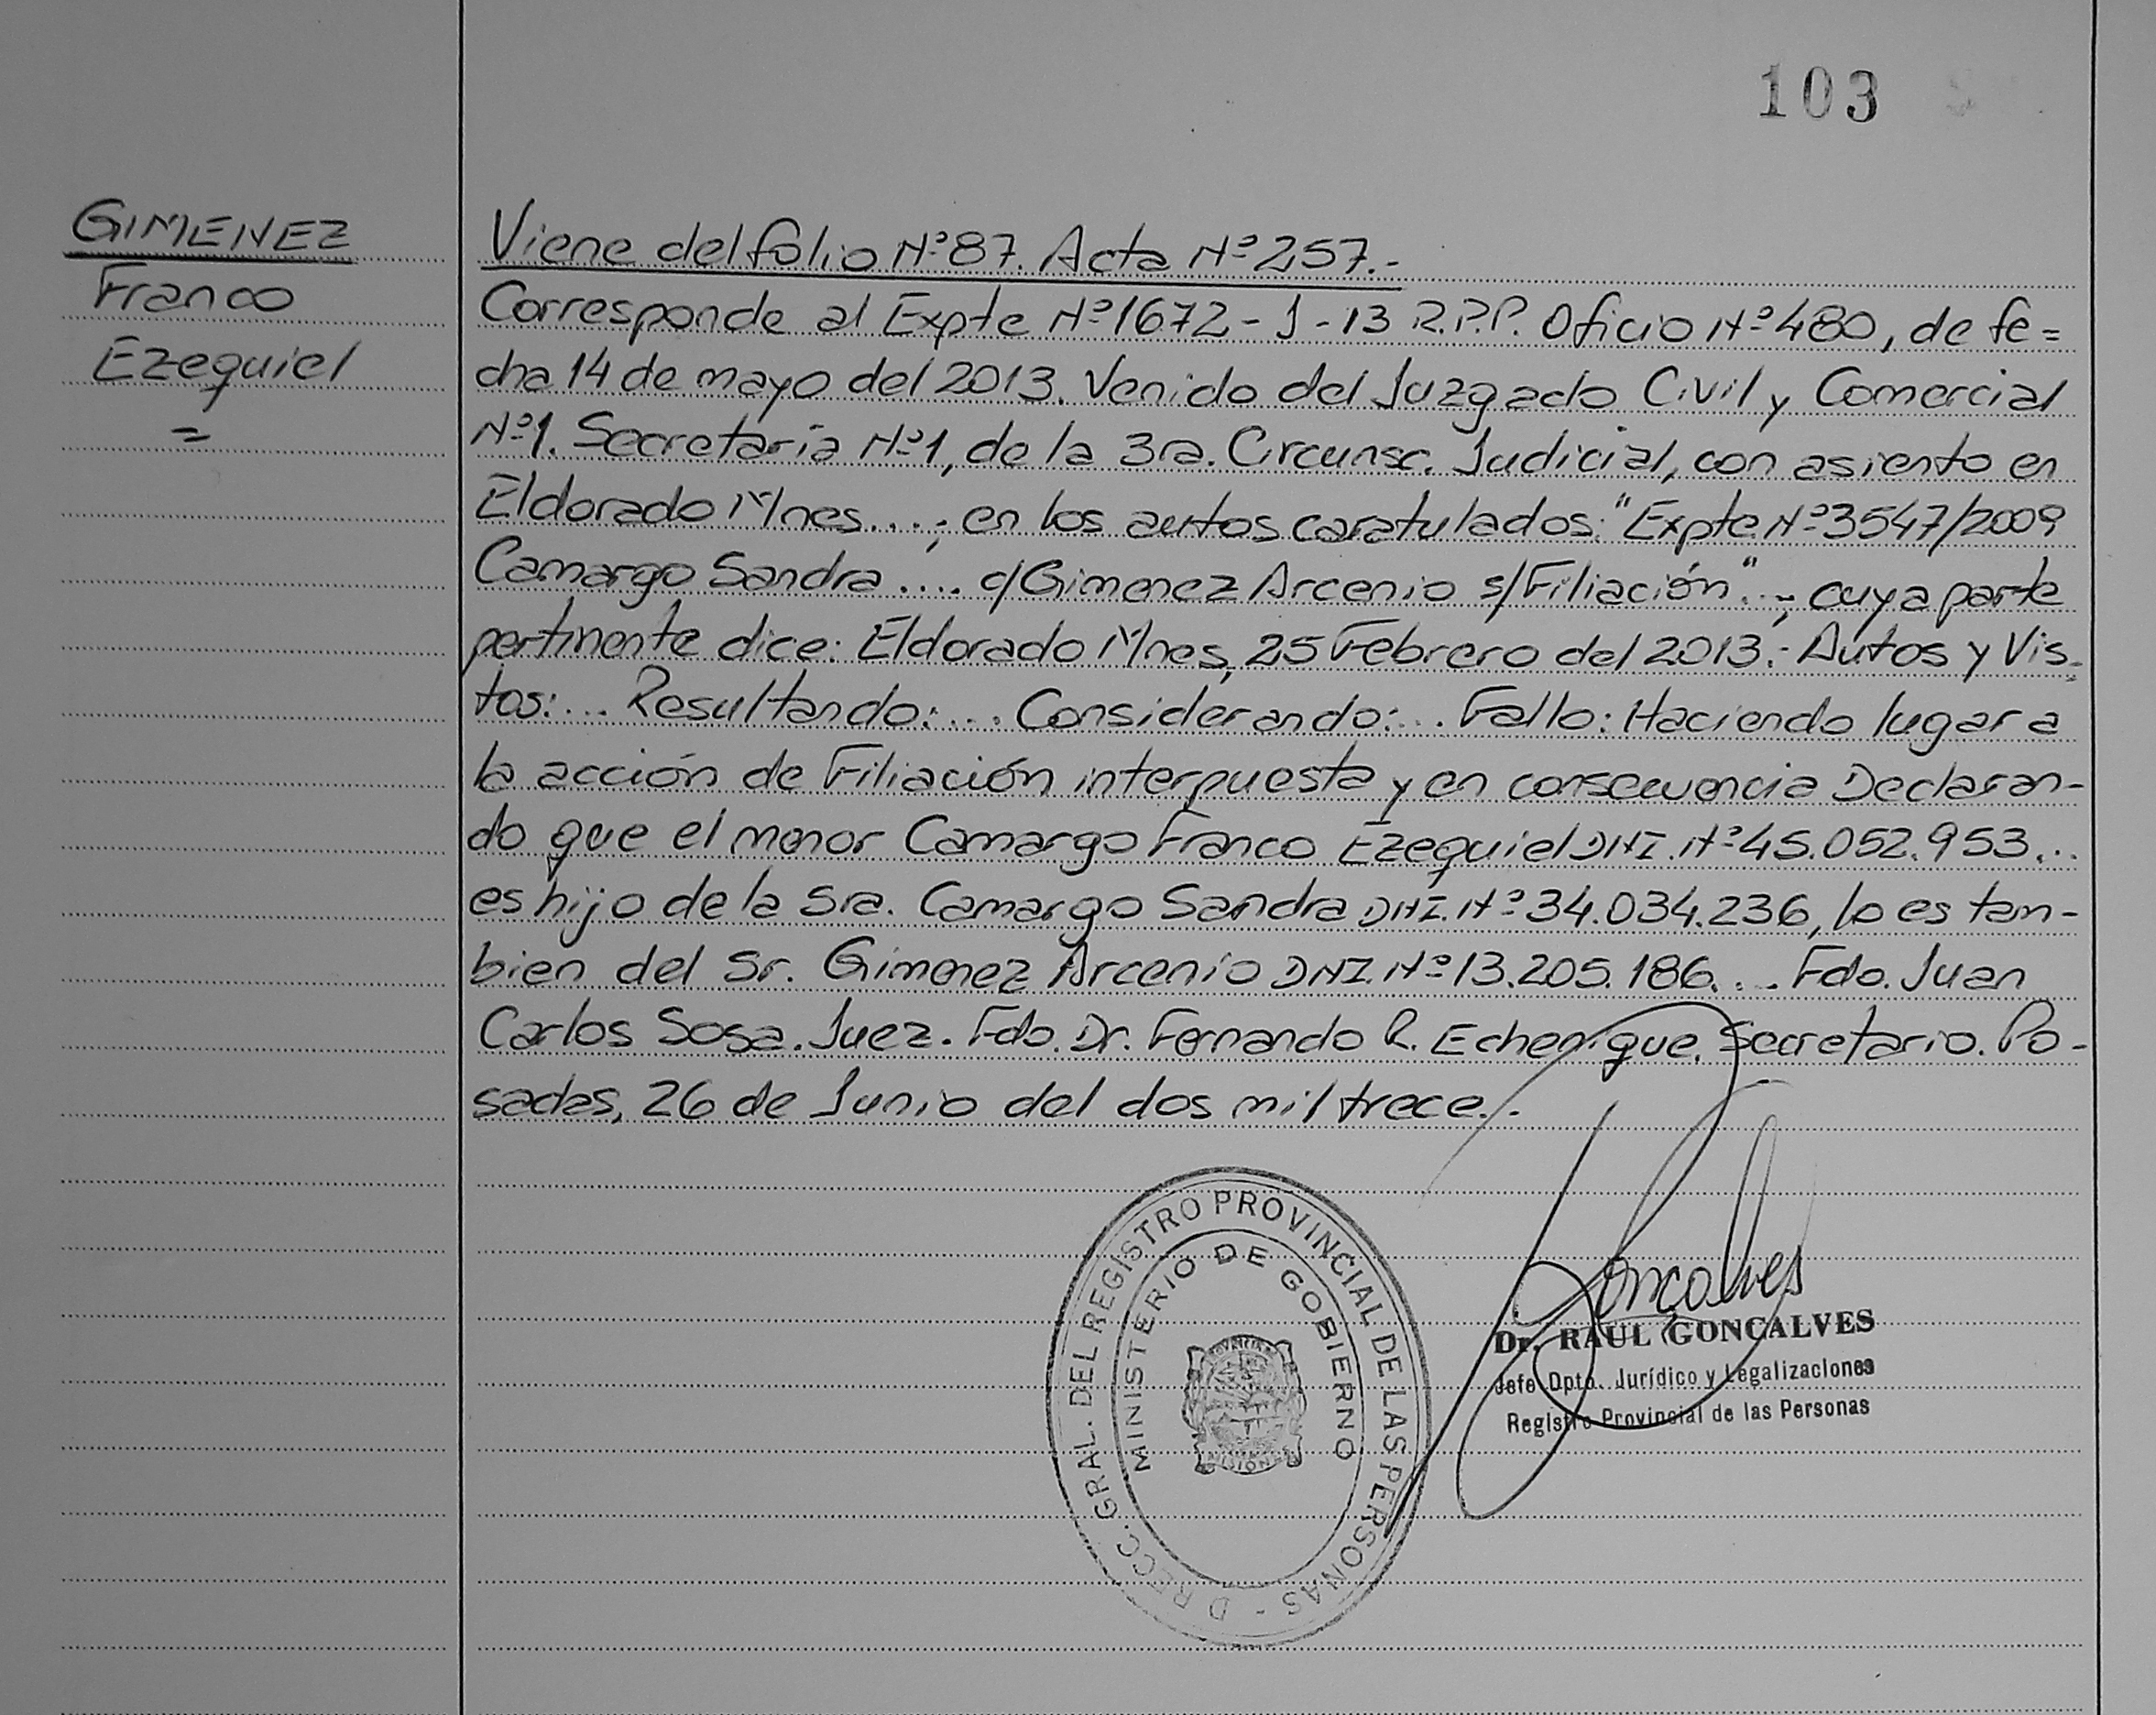 103
GIMENEZ
Franco
Ezequiel
=
Viene del folio Nº 87. Acta Nº 257.-
Corresponde al Expte Nº 1672 - J - 13 R.P.P. Oficio Nº 480, de fe=
cha 14 de mayo del 2013. Venido del Juzgado Civil y Comercial
Nº 1. Secretaría Nº 1, de la 3ra. Circunsc. Judicial, con asiento en
Eldorado Mnes....; en los autos caratulados: "Expte Nº 3547/2009
Camargo Sandra .... c/ Gimenez Arcenio s/ Filiación"..; cuya parte
pertinente dice: Eldorado Mnes, 25 Febrero del 2013.- Autos y Vis-
tos:... Resultando:... Considerando:... Fallo: Haciendo lugar a
la acción de Filiación interpuesta y en consecuencia Declaran-
do que el menor Camargo Franco Ezequiel DNI. Nº 45.052.953...
es hijo de la Sra. Camargo Sandra DNI. Nº 34.034.236, lo es tam-
bien del Sr. Gimenez Arcenio DNI. Nº 13.205.186... Fdo. Juan
Carlos Sosa. Juez. Fdo. Dr. Fernando R. Echenique. Secretario. Po-
sadas, 26 de Junio del dos mil trece..
DRECC. GRAL. DEL REGISTRO PROVINCIAL DE LAS PERSONAS -
MINISTERIO DE GOBIERNO
MISIONES
Gonçalves
Dr. RAUL GONCALVES
Jefe Dpto. Jurídico y Legalizaciones
Registro Provincial de las Personas